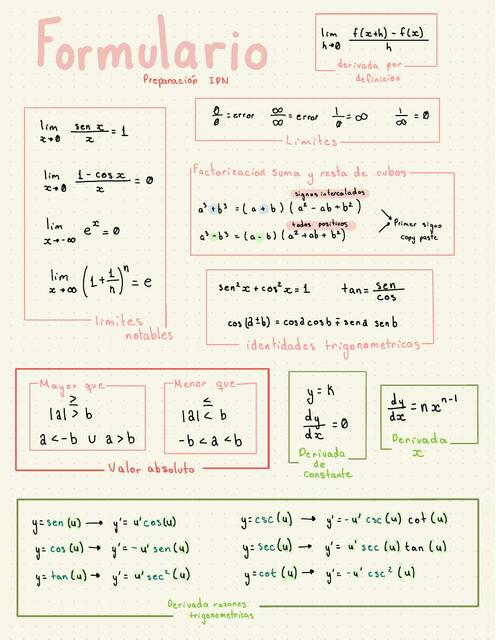 Formulario
Preparación IPN
lim h→0 f(x+h) - f(x) / h
derivada por
definición
0/0 = error ∞/∞ = error 1/0 = ∞ 1/∞ = 0
Límites
lim x→0 sen x / x = 1
lim x→0 1 - cos x / x = 0
lim x→-∞ e^x = 0
lim x→∞ (1 + 1/n)^n = e
límites
notables
Factorización suma y resta de cubos
signos intercalados
a³+b³ = (a + b) (a² - ab + b²)
todos positivos
a³-b³ = (a - b) (a² + ab + b²)
Primer signo
copy paste
sen²x + cos²x = 1 tan = sen/cos
cos(a±b) = cosa cosb ∓ sena senb
identidades trigonometricas
Mayor que
≥
|a| > b
a < -b ∪ a > b
Menor que
≤
|a| < b
-b < a < b
Valor absoluto
y = K
dy/dx = 0
Derivada
de
constante
dy/dx = n x^n-1
Derivada
x
y = sen (u) → y' = u' cos(u)
y = cos (u) → y' = -u' sen(u)
y = tan (u) → y' = u' sec² (u)
y = csc (u) → y' = -u' csc (u) cot (u)
y = sec (u) → y' = u' sec (u) tan (u)
y = cot (u) → y' = -u' csc² (u)
Derivada razones
trigonometricas